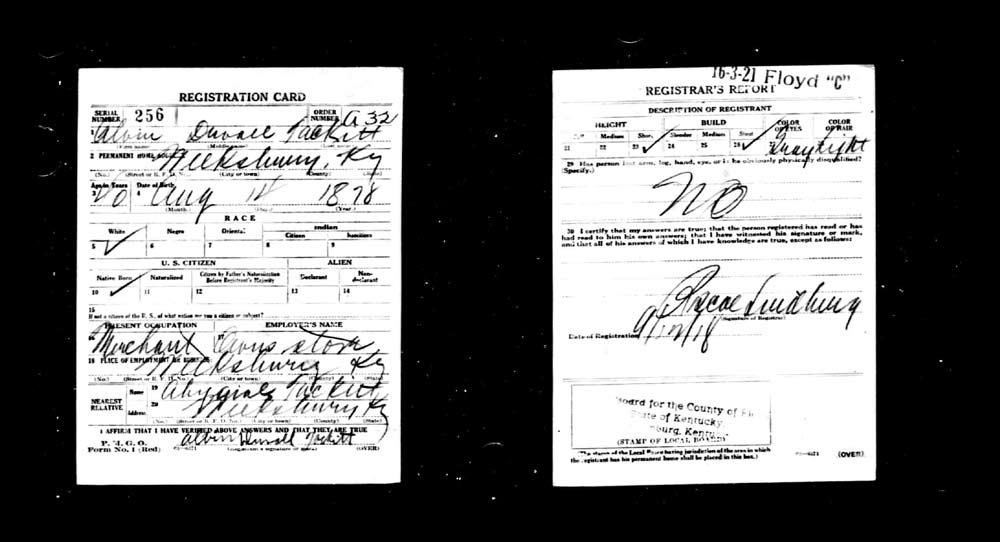 REGISTRATION CARD
SERIAL NUMBER 256 ORDER NUMBER A 32
1 Alvin Duvall Tackitt
(First name) (Middle name) (Last name)
2 PERMANENT HOME ADDRESS Weeksbury, Ky
(No.) (Street or R. F. D. No.) (City or town) (County) (State)
Age in Years Date of Birth
3 40 4 Aug 14 1878
(Month.) (Day.) (Year.)
RACE
White Negro Oriental Indian
Citizen Noncitizen
5 ✓ 6 7 8 9
U. S. CITIZEN ALIEN
Native Born Naturalized Citizen by Father's Naturalization Before Registrant's Majority Declarant Non-declarant
10 ✓ 11 12 13 14
15
If not a citizen of the U. S., of what nation are you a citizen or subject?
PRESENT OCCUPATION EMPLOYER'S NAME
16 Merchant 17 Owns store
18 PLACE OF EMPLOYMENT OR BUSINESS Weeksburg Ky
(No.) (Street or R. F. D. No.) (City or town) (County) (State)
NEAREST RELATIVE Name 19 Tackitt
Address 20 Weeksbury Ky
(No.) (Street or R. F. D. No.) (City or town) (County) (State)
I AFFIRM THAT I HAVE VERIFIED ABOVE ANSWERS AND THAT THEY ARE TRUE
P. M. G. O.
Form No. 1 (Red) Alvin Duvall Tackitt
(Registrant's signature or mark) (OVER)
16-3-21 Floyd "C"
REGISTRAR'S REPORT
DESCRIPTION OF REGISTRANT
HEIGHT BUILD COLOR OF EYES COLOR OF HAIR
Medium Short Slender Medium Stout
21 22 23 ✓ 24 25 26 ✓ Gray Light
29 Has person lost arm, leg, hand, eye, or is he obviously physically disqualified?
(Specify.)
NO
30 I certify that my answers are true; that the person registered has read or has
had read to him his own answers; that I have witnessed his signature or mark,
and that all of his answers of which I have knowledge are true, except as follows:
Roscoe
(Signature of Registrar)
Date of Registration 9/12/18
Board for the County of
State of Kentucky
burg, Kentucky
(STAMP OF LOCAL BOARD)
(The stamp of the Local Board having jurisdiction of the area in which
the registrant has his permanent home shall be placed in this box.) (OVER)